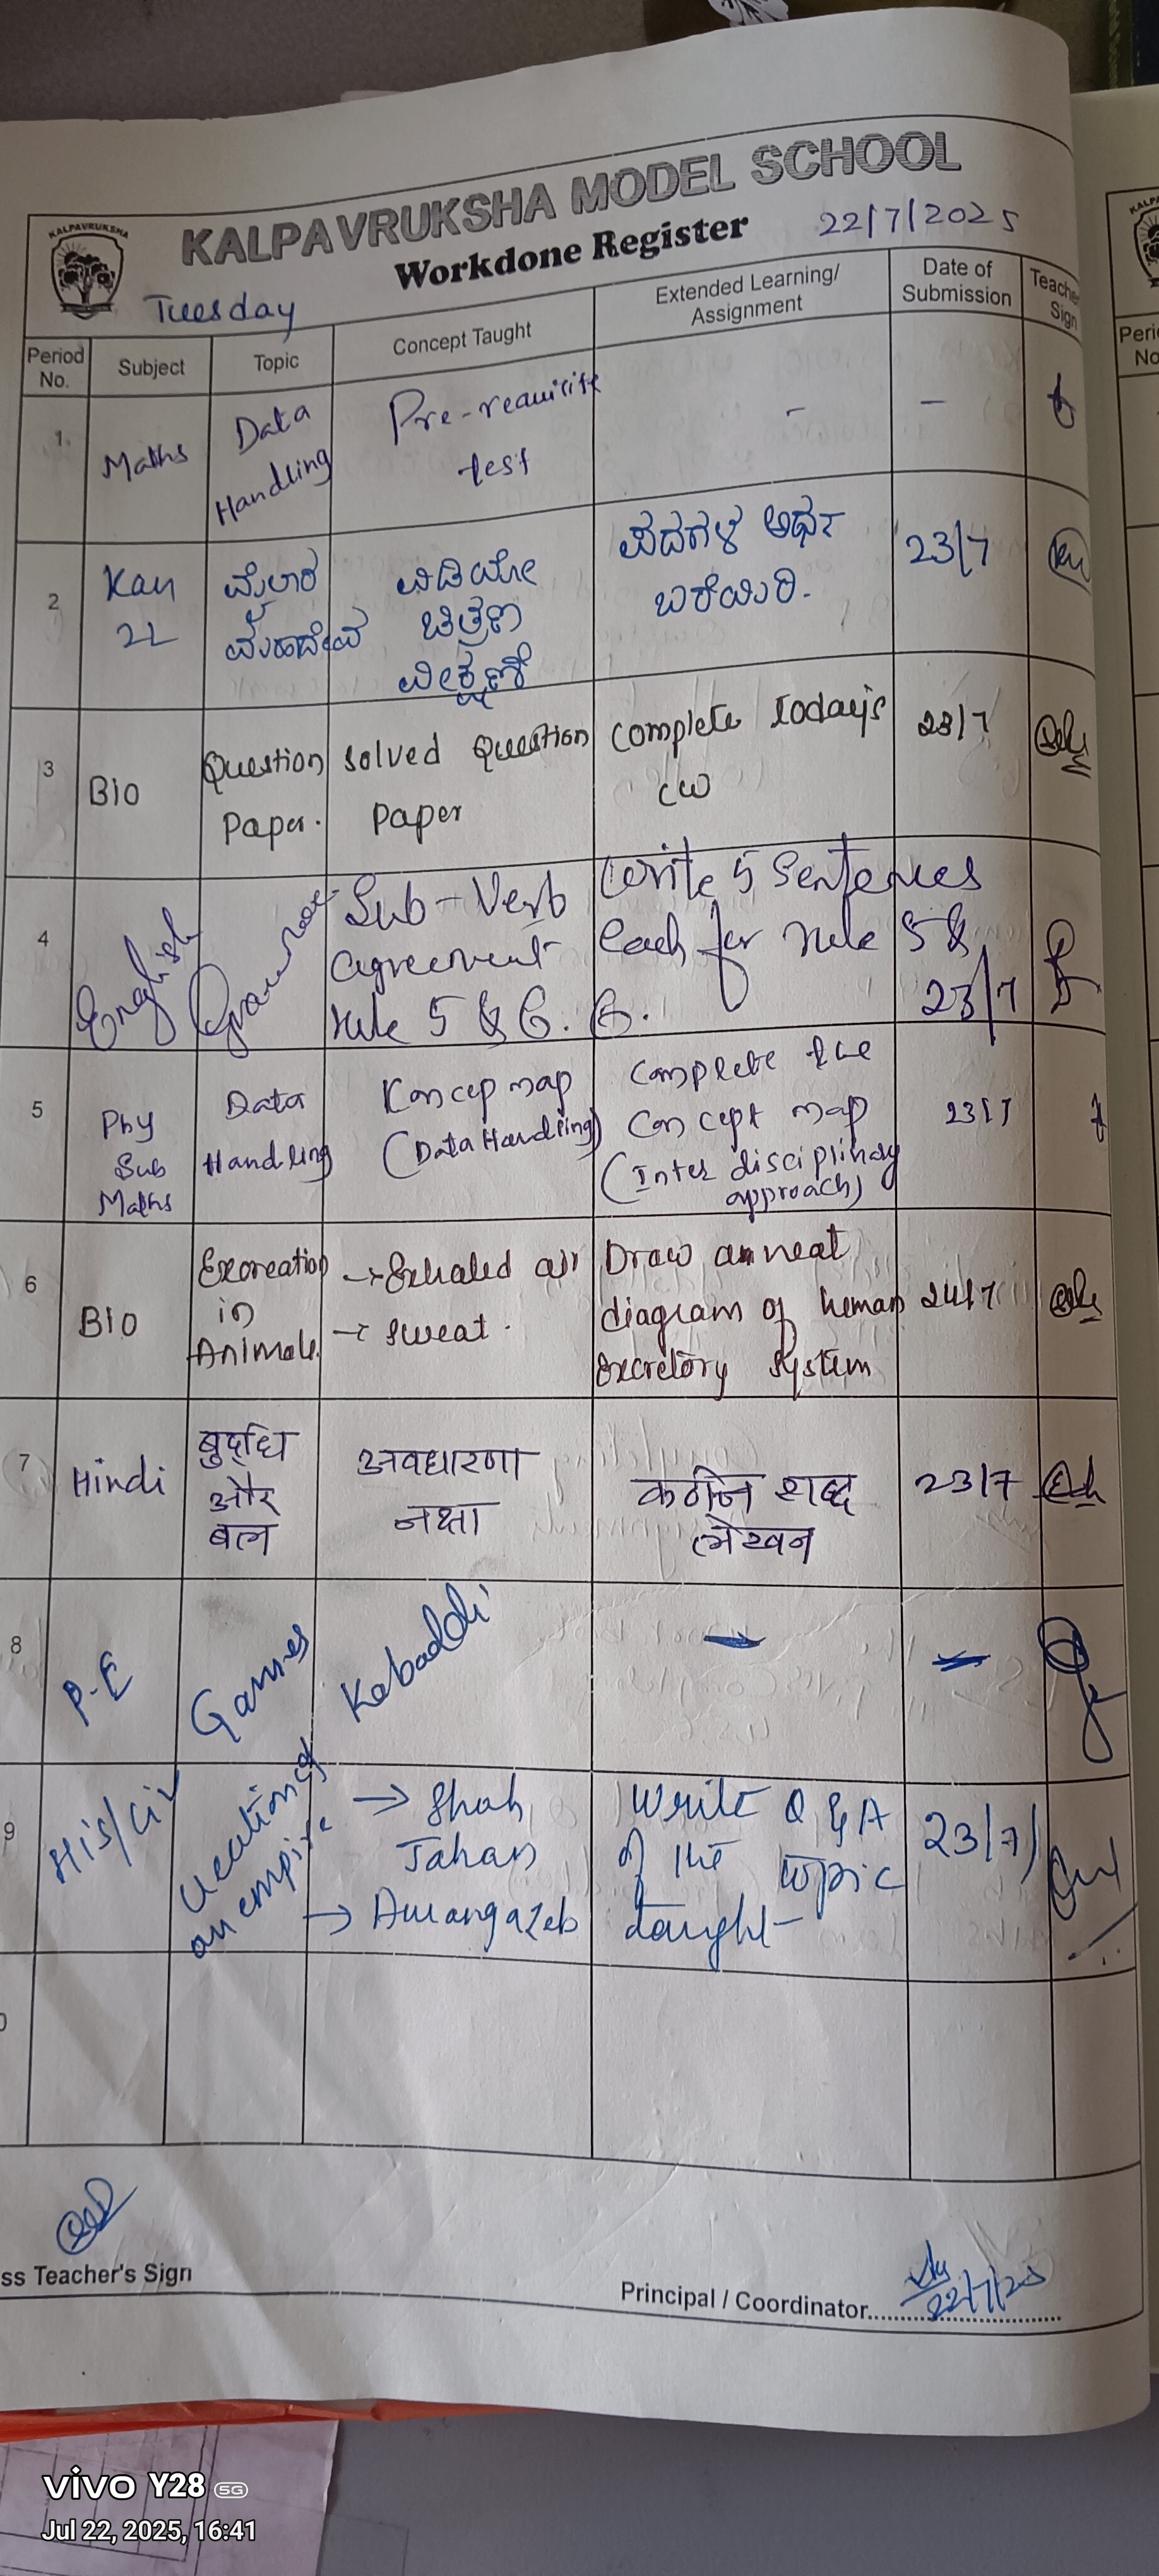 KALPAVRUKSHA
KALPAVRUKSHA MODEL SCHOOL
Workdone Register
22/7/2025
Tuesday
Period No.
Subject
Topic
Concept Taught
Extended Learning/
Assignment
Date of
Submission
Teacher
Sign
1.
Maths
Data
Handling
Pre-requisite
test
-
-
2
Kan
2L
ಮೈಲಾರ
ಮಹಾದೇವ
ವಿಡಿಯೋ
ಚಿತ್ರಣ
ವೀಕ್ಷಣೆ
ಪದಗಳ ಅರ್ಥ
ಬರೆಯಿರಿ.
23/7
3
BIO
Question
Paper.
solved Question
Paper
complete today's
CW
23/7
4
English
Grammar
Sub-Verb
agreement
rule 5 & 6.
Write 5 Sentences
each for rule 5 &
6.
23/7
5
Phy
Sub
Maths
Data
Handling
Concep map
(Data Handling)
Complete the
Concept map
(Inter disciplinary
approach)
23/7
6
BIO
Excreation
in
Animals
→ Exhaled air
→ sweat.
Draw an neat
diagram of human
excretory system
24/7
7
Hindi
बुद्धि
और
बल
अवधारणा
नक्षा
कठिन शब्द
लेखन
23/7
8
P.E
Games
Kabaddi
-
-
9
His/Civ
Creation of
an empire
→ Shah
Jahan
→ Aurangazeb
Write Q & A
of the topic
taught
23/7/
ss Teacher's Sign
Principal / Coordinator
22/7/25
Peri
No
vivo Y28 5G
Jul 22, 2025, 16:41